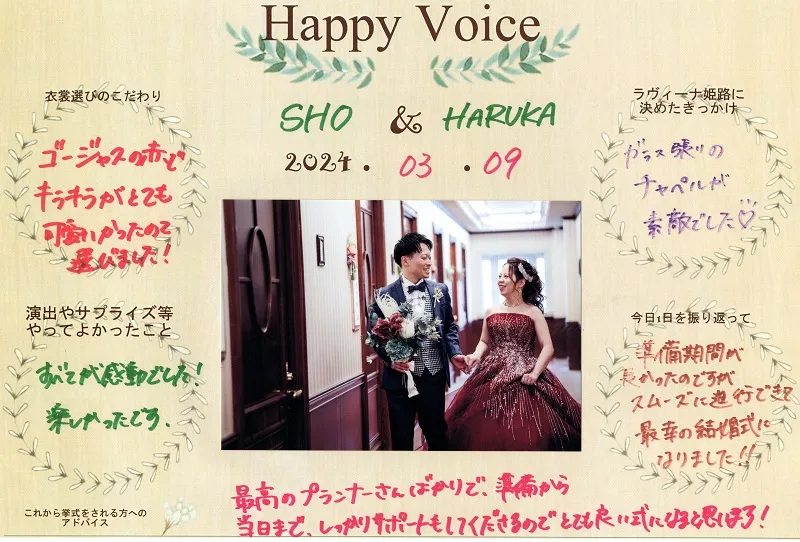 Happy Voice
SHO & HARUKA
2024. 03. 09
衣裳選びのこだわり
ゴージャスの赤で
キラキラがとても
可愛いかったので
選びました!
ラヴィーナ姫路に
決めたきっかけ
ガラス張りの
チャペルが
素敵でした♡
演出やサプライズ等
やってよかったこと
すべてが感動でした!
楽しかったです.
今日1日を振り返って
準備期間が
長かったのですが
スムーズに進行できて
最幸の結婚式に
なりました!!
これから挙式をされる方への
アドバイス
最高のプランナーさんばかりで、準備から
当日まで、しっかりサポートもしてくださるのでとても良い式になると思